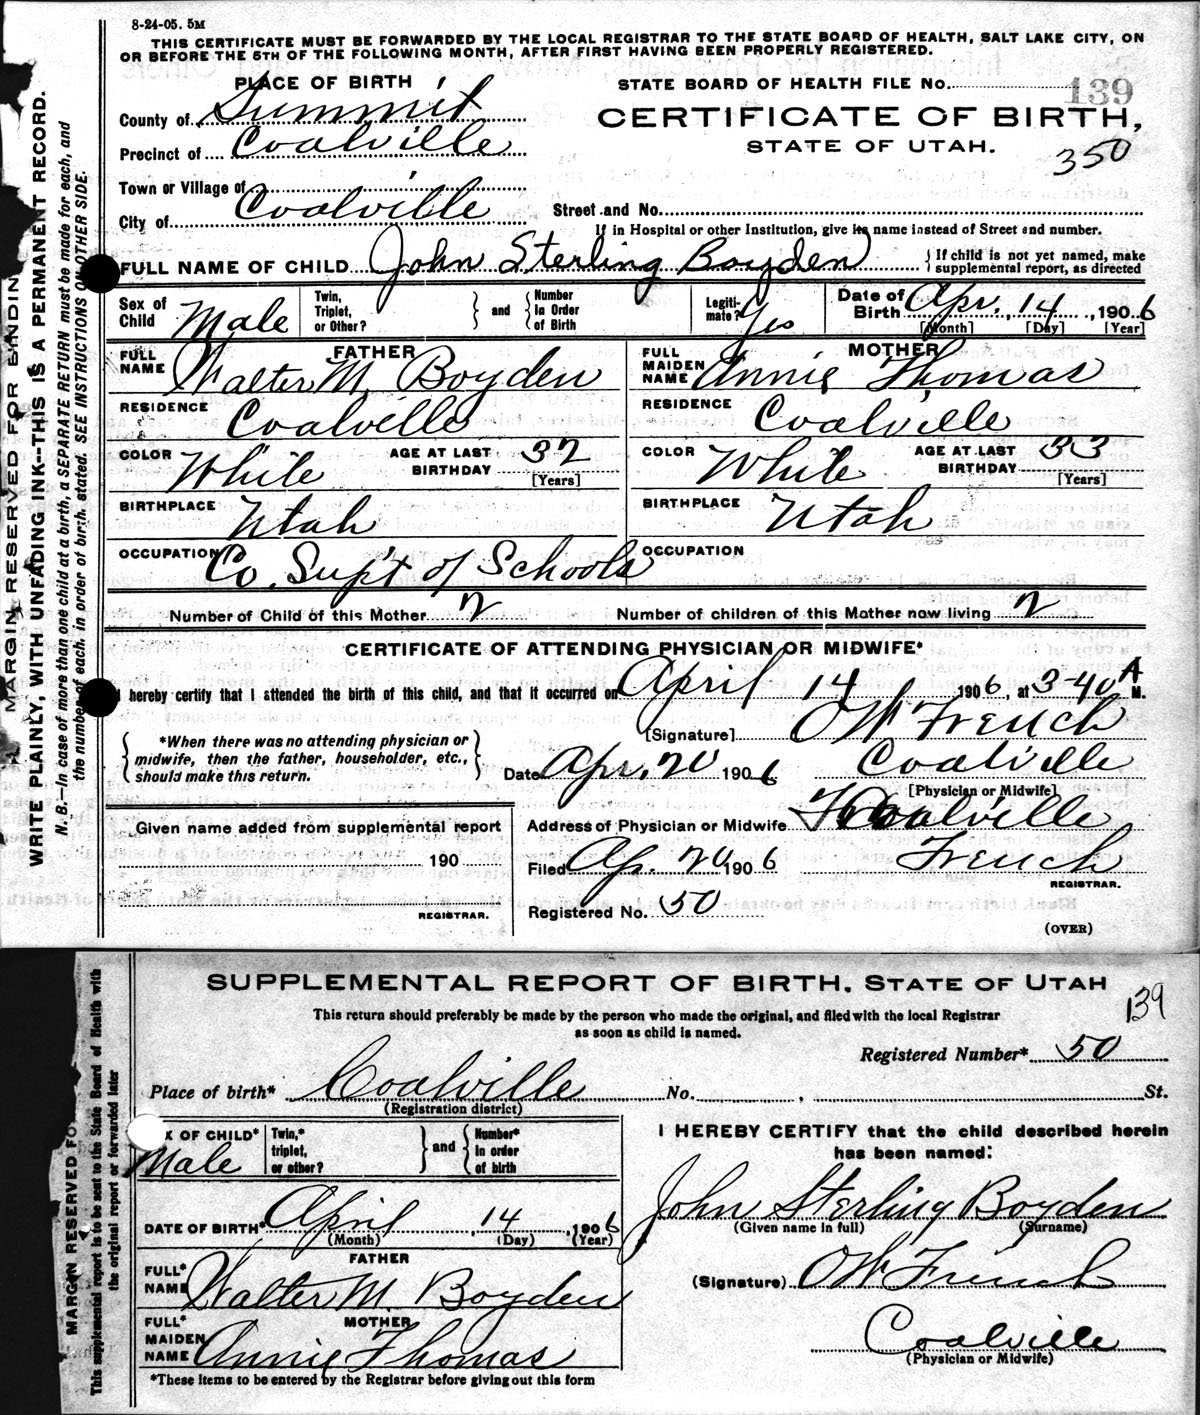 8-24-05. 5M
THIS CERTIFICATE MUST BE FORWARDED BY THE LOCAL REGISTRAR TO THE STATE BOARD OF HEALTH, SALT LAKE CITY, ON
OR BEFORE THE 5TH OF THE FOLLOWING MONTH, AFTER FIRST HAVING BEEN PROPERLY REGISTERED.
PLACE OF BIRTH
STATE BOARD OF HEALTH FILE No. 139
County of Summit
CERTIFICATE OF BIRTH,
STATE OF UTAH.
350
Precinct of Coalville
Town or Village of
City of Coalville
Street and No.
If in Hospital or other Institution, give its name instead of Street and number.
FULL NAME OF CHILD John Sterling Boyden
{If child is not yet named, make
supplemental report, as directed
Sex of Child Male
Twin, Triplet, or Other?
and
Number In Order of Birth
Legiti-mate? Yes
Date of Birth Apr. 14, 1906
[Month] [Day] [Year]
FATHER
FULL NAME Walter M. Boyden
MOTHER
FULL MAIDEN NAME Annie Thomas
RESIDENCE Coalville
RESIDENCE Coalville
COLOR White AGE AT LAST BIRTHDAY 37 [Years]
COLOR White AGE AT LAST BIRTHDAY 33 [Years]
BIRTHPLACE Utah
BIRTHPLACE Utah
OCCUPATION Co. Sup't of Schools
OCCUPATION
Number of Child of this Mother 2
Number of children of this Mother now living 2
CERTIFICATE OF ATTENDING PHYSICIAN OR MIDWIFE*
I hereby certify that I attended the birth of this child, and that it occurred on April 14 1906, at 3-40 A M.
[Signature] O W French
{*When there was no attending physician or
midwife, then the father, householder, etc.,
should make this return.}
Date Apr. 20 1906 Coalville
[Physician or Midwife]
Given name added from supplemental report
190
REGISTRAR.
Address of Physician or Midwife Coalville
Filed Ap. 20 1906 French
REGISTRAR.
Registered No. 50
(OVER)
MARGIN RESERVED FOR BINDIN
WRITE PLAINLY, WITH UNFADING INK--THIS IS A PERMANENT RECORD.
N. B.—In case of more than one child at a birth, a SEPARATE RETURN must be made for each, and
the number of each, in order of birth, stated. SEE INSTRUCTIONS ON OTHER SIDE.
SUPPLEMENTAL REPORT OF BIRTH, STATE OF UTAH
139
This return should preferably be made by the person who made the original, and filed with the local Registrar
as soon as child is named.
Registered Number* 50
Place of birth* Coalville No. , St.
(Registration district)
X OF CHILD* Male
Twin,* triplet, or other?
and
Number* In order of birth
I HEREBY CERTIFY that the child described herein
has been named:
DATE OF BIRTH* April, 14, 1906
(Month) (Day) (Year)
John Sterling Boyden
(Given name in full) (Surname)
FATHER
FULL* NAME Walter M. Boyden
(Signature) O W French
MOTHER
FULL* MAIDEN NAME Annie Thomas
Coalville
(Physician or Midwife)
*These items to be entered by the Registrar before giving out this form
MARGIN RESERVED FO
This supplemental report is to be sent to the State Board of Health with
the original report or forwarded later